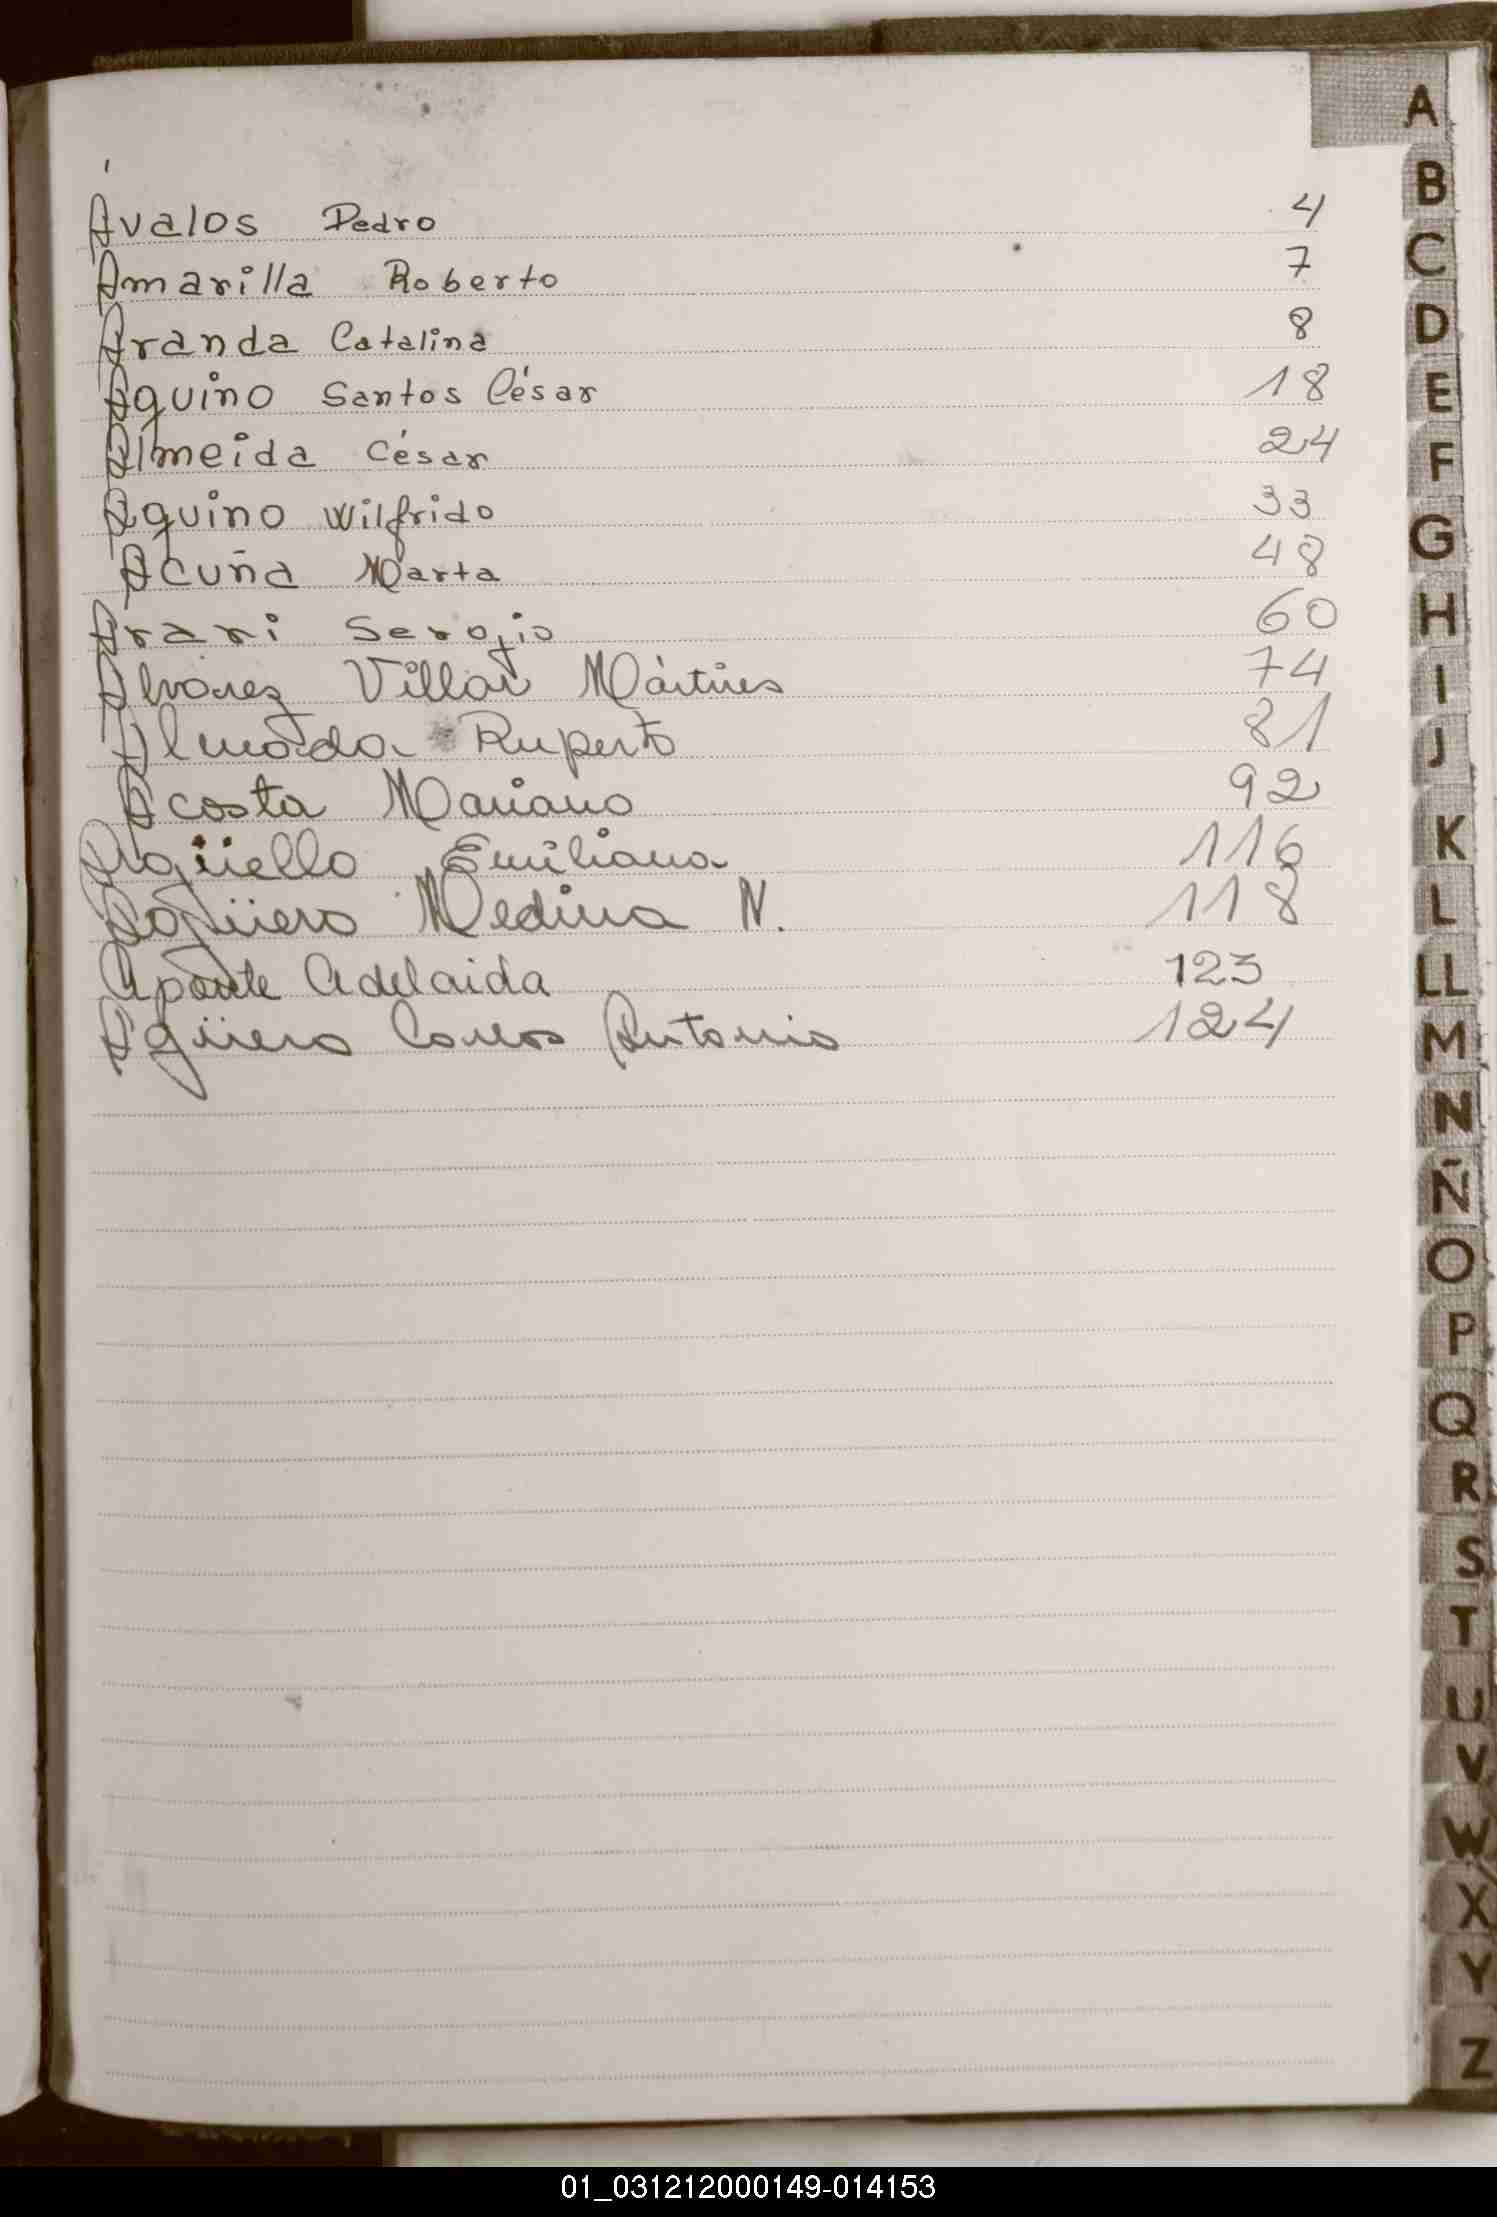 Avalos Pedro 4
Amarilla Roberto 7
Aranda Catalina 8
Aquino Santos César 18
Almeida César 24
Aquino Wilfrido 33
Acuña Marta 48
Arari Sergio 60
Alvarez Villar Mártires 74
Almada Ruperto 81
Acosta Mariano 92
Argüello Emiliana 116
Agüero Medina N. 118
Aponte Adelaida 123
Agüero Carlos Antonio 124
A
B
C
D
E
F
G
H
I
J
K
L
LL
M
N
Ñ
O
P
Q
R
S
T
U
V
W
X
Y
Z
01_031212000149-014153